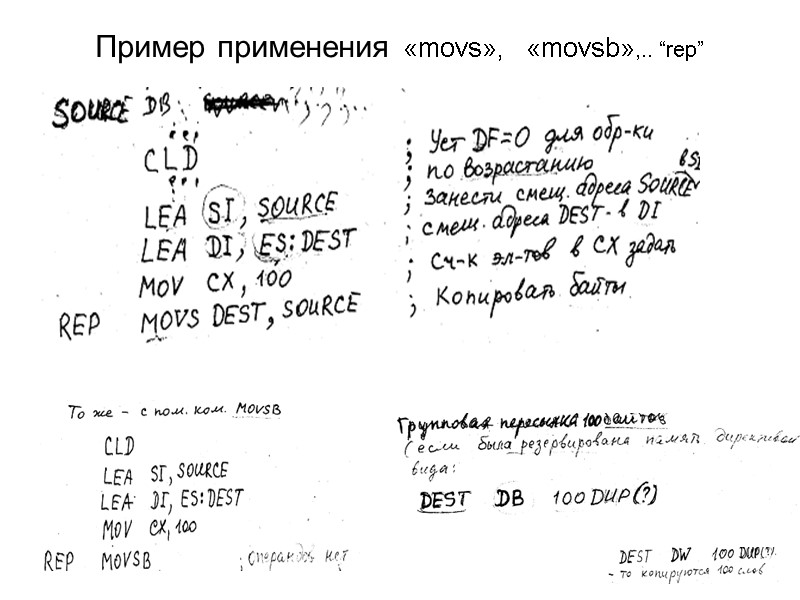 Пример применения «movs», «movsb»,.. “rep”
SOURCE DB
CLD
LEA SI, SOURCE
LEA DI, ES:DEST
MOV CX, 100
REP MOVS DEST, SOURCE
; Уст DF=0 для обр-ки
; по возрастанию
; Занести смещ. адреса SOURCE в SI
; смещ. адреса DEST - в DI
; Сч-к эл-тов в CX задать
; Копировать байты
То же - с пом. ком. MOVSB
CLD
LEA SI, SOURCE
LEA DI, ES:DEST
MOV CX, 100
REP MOVSB ; Операндов нет
Групповая пересылка 100 байтов
(если была резервирована память директивой
вида:
DEST DB 100 DUP(?)
DEST DW 100 DUP(?).
- то копируются 100 слов